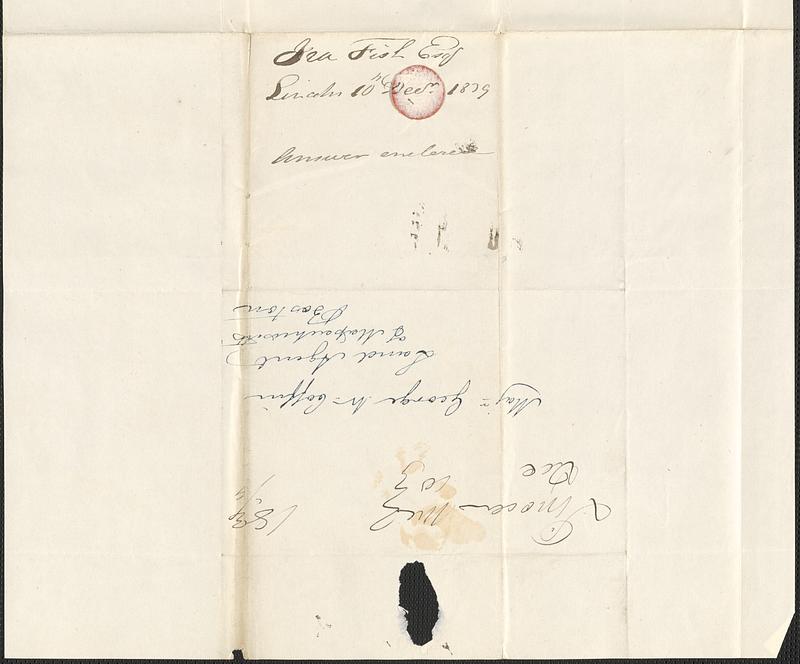 Ira Fish Esq
Lincoln 10th Decr. 1839
Answer enclosed
Lincoln Me
Dec 10
18 3/4
Maj= George W= Coffin
Land Agent
of Massachusetts
Boston